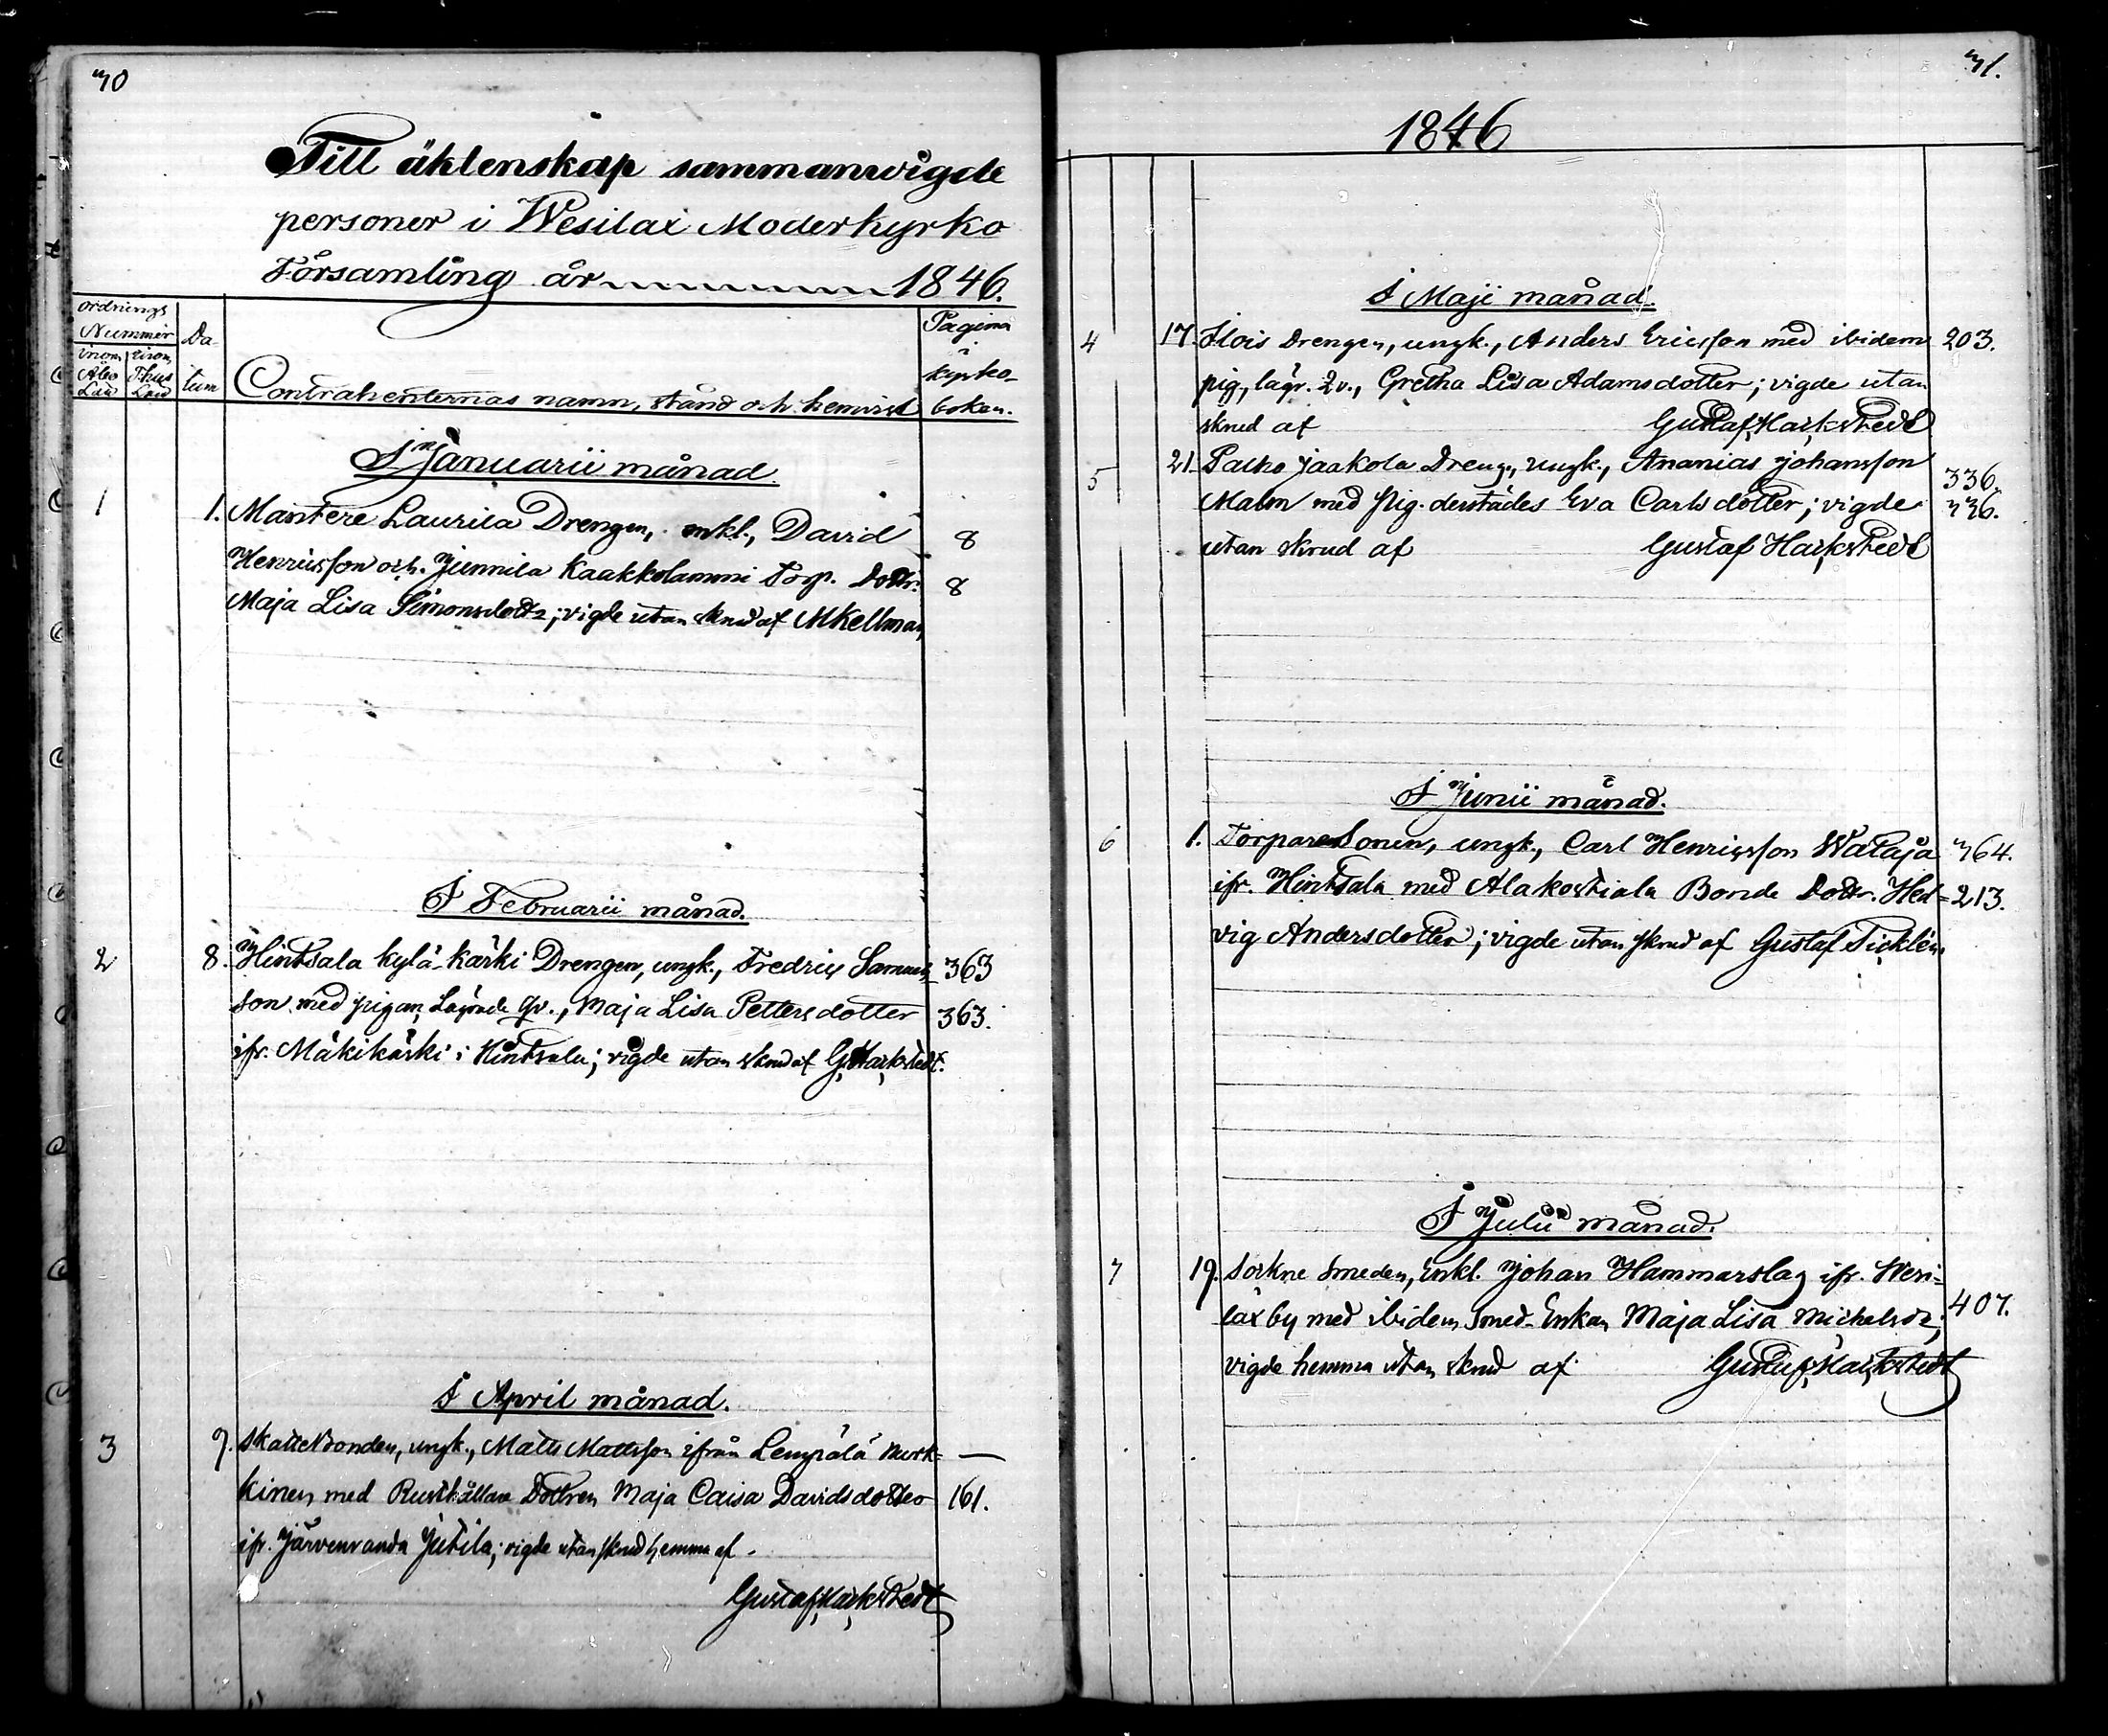 70
Till äktenskap sammanwigde
personer i Wesilax Moderkyrko
Församling år 1846.
ordnings
Nummer
Da-
tum
inom
Åbo
Län
inom
Thus
Land
Contrahenternas namn, stånd och hemvist
Pagina
i
kyrko-
boken.
I Januarii månad.
1 1. Mantere Laurila Drengen, enkl., David 8
Henricsson och Junnila Kaakkolammi Torp. Dottr. 8
Maja Lisa Simonsdottr; vigde utan skrud af M Kellman
I Februarii månad.
2 8. Hintsala kylä-Kärki Drengen, ungk., Fredric Samuels- 363
son med pigan, Lägrade qv., Maja Lisa Pettersdotter 363.
ifr. Mäkikärki i Hintsala; vigde utan skrud af G. Harkstedt.
I April månad.
3 9. Skattebonden, ungk., Matts Mattsson ifrån Lempälä Nurk- —
kinen med Rusthållare Dottren Maja Caisa Davidsdotter 161.
ifr. Järvenranda Jutila; vigde utan skrud hemma af
Gustaf Harkstedt
71.
1846
I Maji månad.
4 17. Ilois Drengen, ungk., Anders Ericsson med ibidem 203.
pig., lägr. qv., Gretha Lisa Adamsdotter; vigde utan
skrud af Gustaf Harkstedt
5 21. Palho Jaakola Dreng., ungk., Ananias Johansson 336.
Malm med pig. derstädes Eva Carlsdotter; vigde 336.
utan skrud af Gustaf Harkstedt
I Junii månad.
6 1. Torpare Sonen, ungk., Carl Henricsson Wataja 364.
ifr. Hintsala med Alakostiala Bonde Dottr. Hed- 213.
vig Andersdotter; vigde utan skrud af Gustaf Ticklén.
I Julii månad.
7 19. Sockne Smeden, Enkl. Johan Hammarslag ifr. Wesi-
lax by med ibidem Smed-Enkan Maja Lisa Michelsdr; 407.
vigde hemma utan skrud af Gustaf Harkstedt